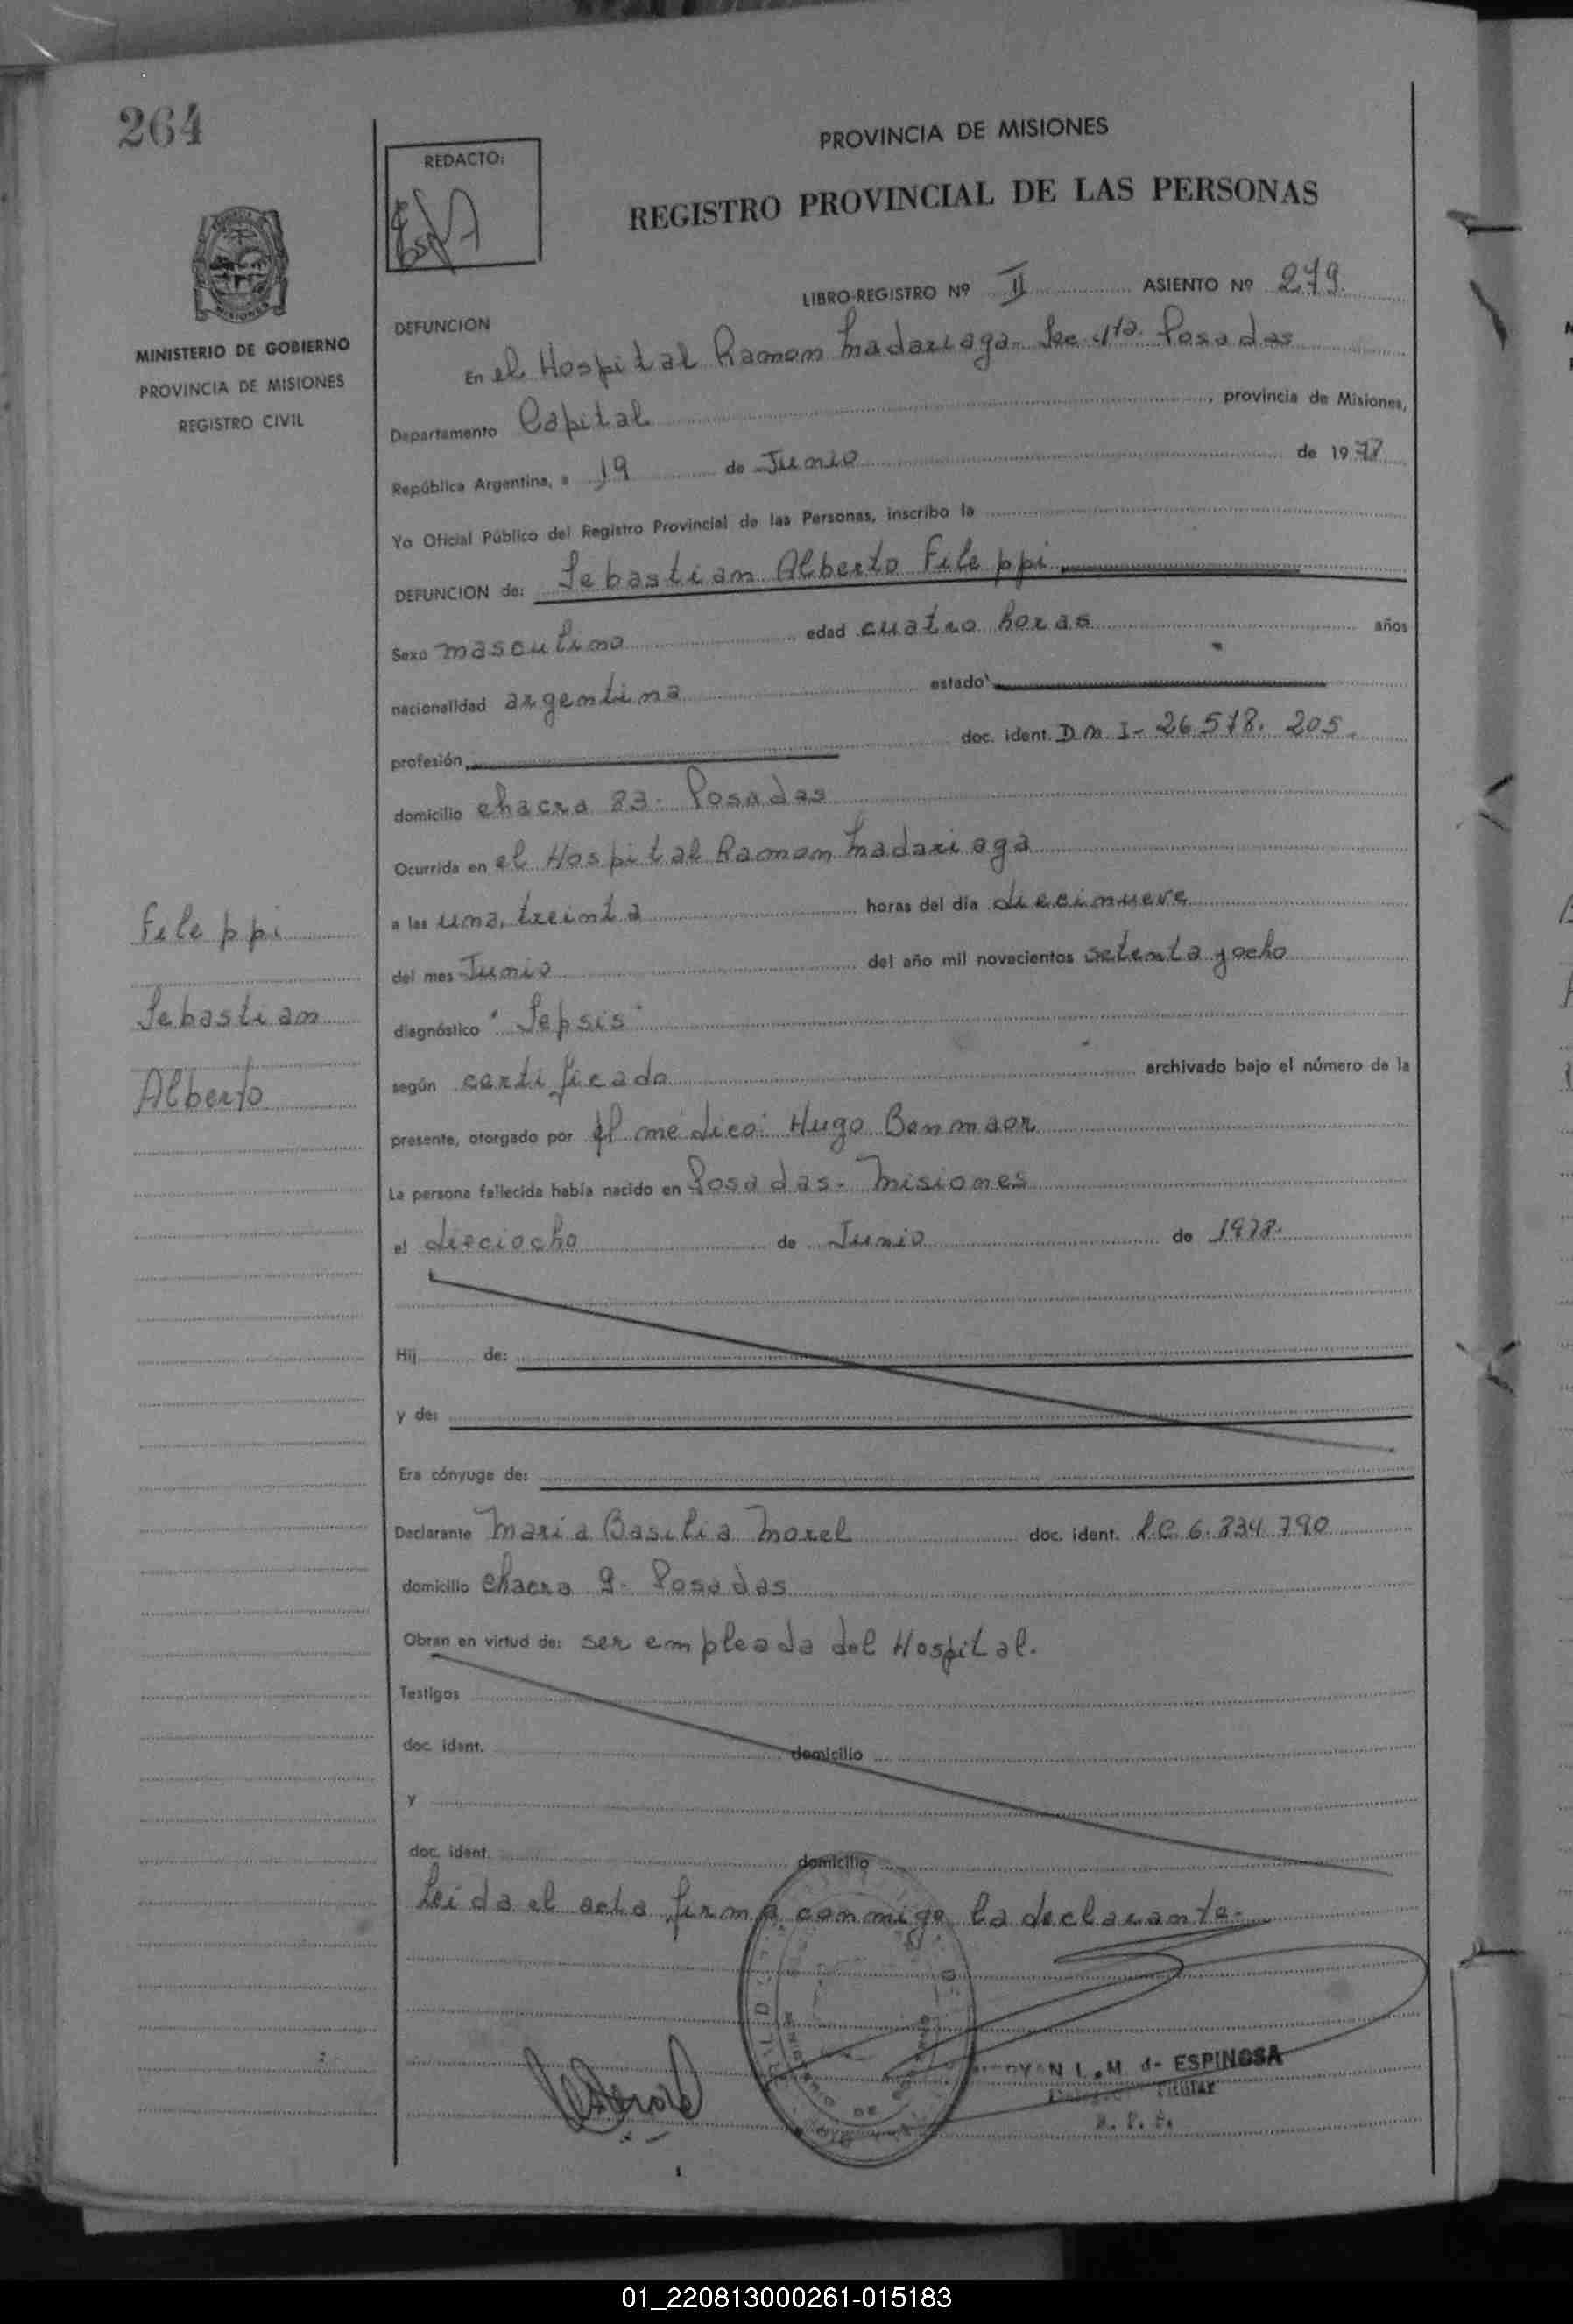 264
REDACTO:
PROVINCIA DE MISIONES
REGISTRO PROVINCIAL DE LAS PERSONAS
MINISTERIO DE GOBIERNO
PROVINCIA DE MISIONES
REGISTRO CIVIL
LIBRO-REGISTRO Nº II ASIENTO Nº 279.
DEFUNCION
En el Hospital Ramon Madariaga- Sec 4ta. Posadas
Departamento Capital, provincia de Misiones,
República Argentina, a 19 de Junio de 1978
Yo Oficial Público del Registro Provincial de las Personas, inscribo la
DEFUNCION de: Sebastian Alberto Fileppi
Sexo masculino edad cuatro horas años
nacionalidad argentina estado
profesión doc. ident. D.N.I- 26.578.205.
domicilio chacra 83- Posadas
Ocurrida en el Hospital Ramon Madariaga
a las una, treinta horas del día diecinueve
del mes Junio del año mil novecientos setenta y ocho
diagnóstico "Sepsis"
según certificado archivado bajo el número de la
presente, otorgado por el médico: Hugo Benmaor
La persona fallecida había nacido en Posadas- Misiones
el dieciocho de Junio de 1978.
Hij de:
y de:
Era cónyuge de:
Declarante Maria Basilia Morel doc. ident. L.C. 6.834.790
domicilio chacra 9- Posadas
Obran en virtud de: ser empleada del Hospital.
Testigos
doc. ident. domicilio
y
doc. ident. domicilio
Leida el acta firma conmigo la declarante-
Fileppi
Sebastian
Alberto
L. M. de ESPINOSA
Titular
R. P. P.
01_220813000261-015183